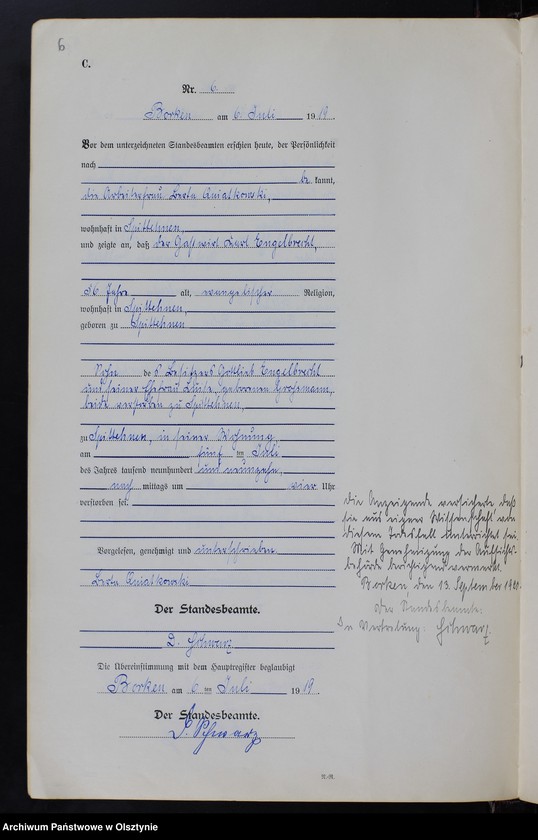 6
C.
Nr. 6
Borken am 6. Juli 1919.
Vor dem unterzeichneten Standesbeamten erschien heute, der Persönlichkeit
nach
be kannt,
die Arbeiterfrau Berta Kwiatkowski,
wohnhaft in Spittehnen,
und zeigte an, daß der Gastwirt Karl Engelbrecht,
alt, evangelischer Religion,
wohnhaft in Spittehnen,
geboren zu Spittehnen
Sohn des Besitzers Gottlieb Engelbrecht
und seiner Ehefrau Luise, geborenen Grohsmann,
beide verstorben zu Spittehnen,
zu Spittehnen, in seiner Wohnung,
am fünf ten Juli
des Jahres tausend neunhundert und neunzehn,
nach mittags um vier Uhr
verstorben sei.
Vorgelesen, genehmigt und unterschrieben.
Berta Kwiatkowski
Der Standesbeamte.
Schwarz
Die Übereinstimmung mit dem Hauptregister beglaubigt
Borken am 6 ten Juli 1919.
Der Standesbeamte.
Schwarz
die Anzeigende versicherte, daß
sie aus eigner Wissenschaft von
diesem Todesfall unterrichtet sei.
Mit Genehmigung der Aufsichts-
behörde berichtigend vermerkt.
Borken, den 13. September 19
Der Standesbeamte:
In Vertretung: Schwarz.
Archiwum Państwowe w Olsztynie